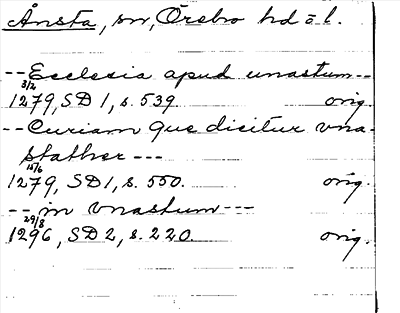 Ånsta, sn, Örebro hd o l.
-- Ecclesia apud unastum --
3/2
1279, SD 1, s. 539. orig.
-- Curiam que dicitur vna-
stather ---
15/6
1279, SD 1, s. 550. orig.
-- in vnastum ---
29/8
1296, SD 2, s. 220. orig.